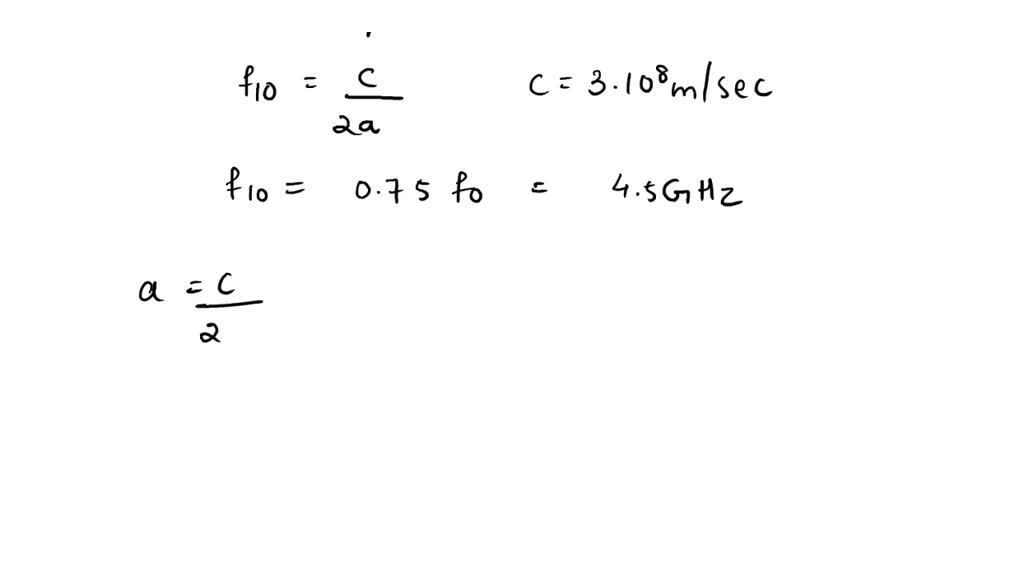 f10 = c/2a c = 3.10⁸m/sec
f10 = 0.75 f0 = 4.5GHz
a = c/2